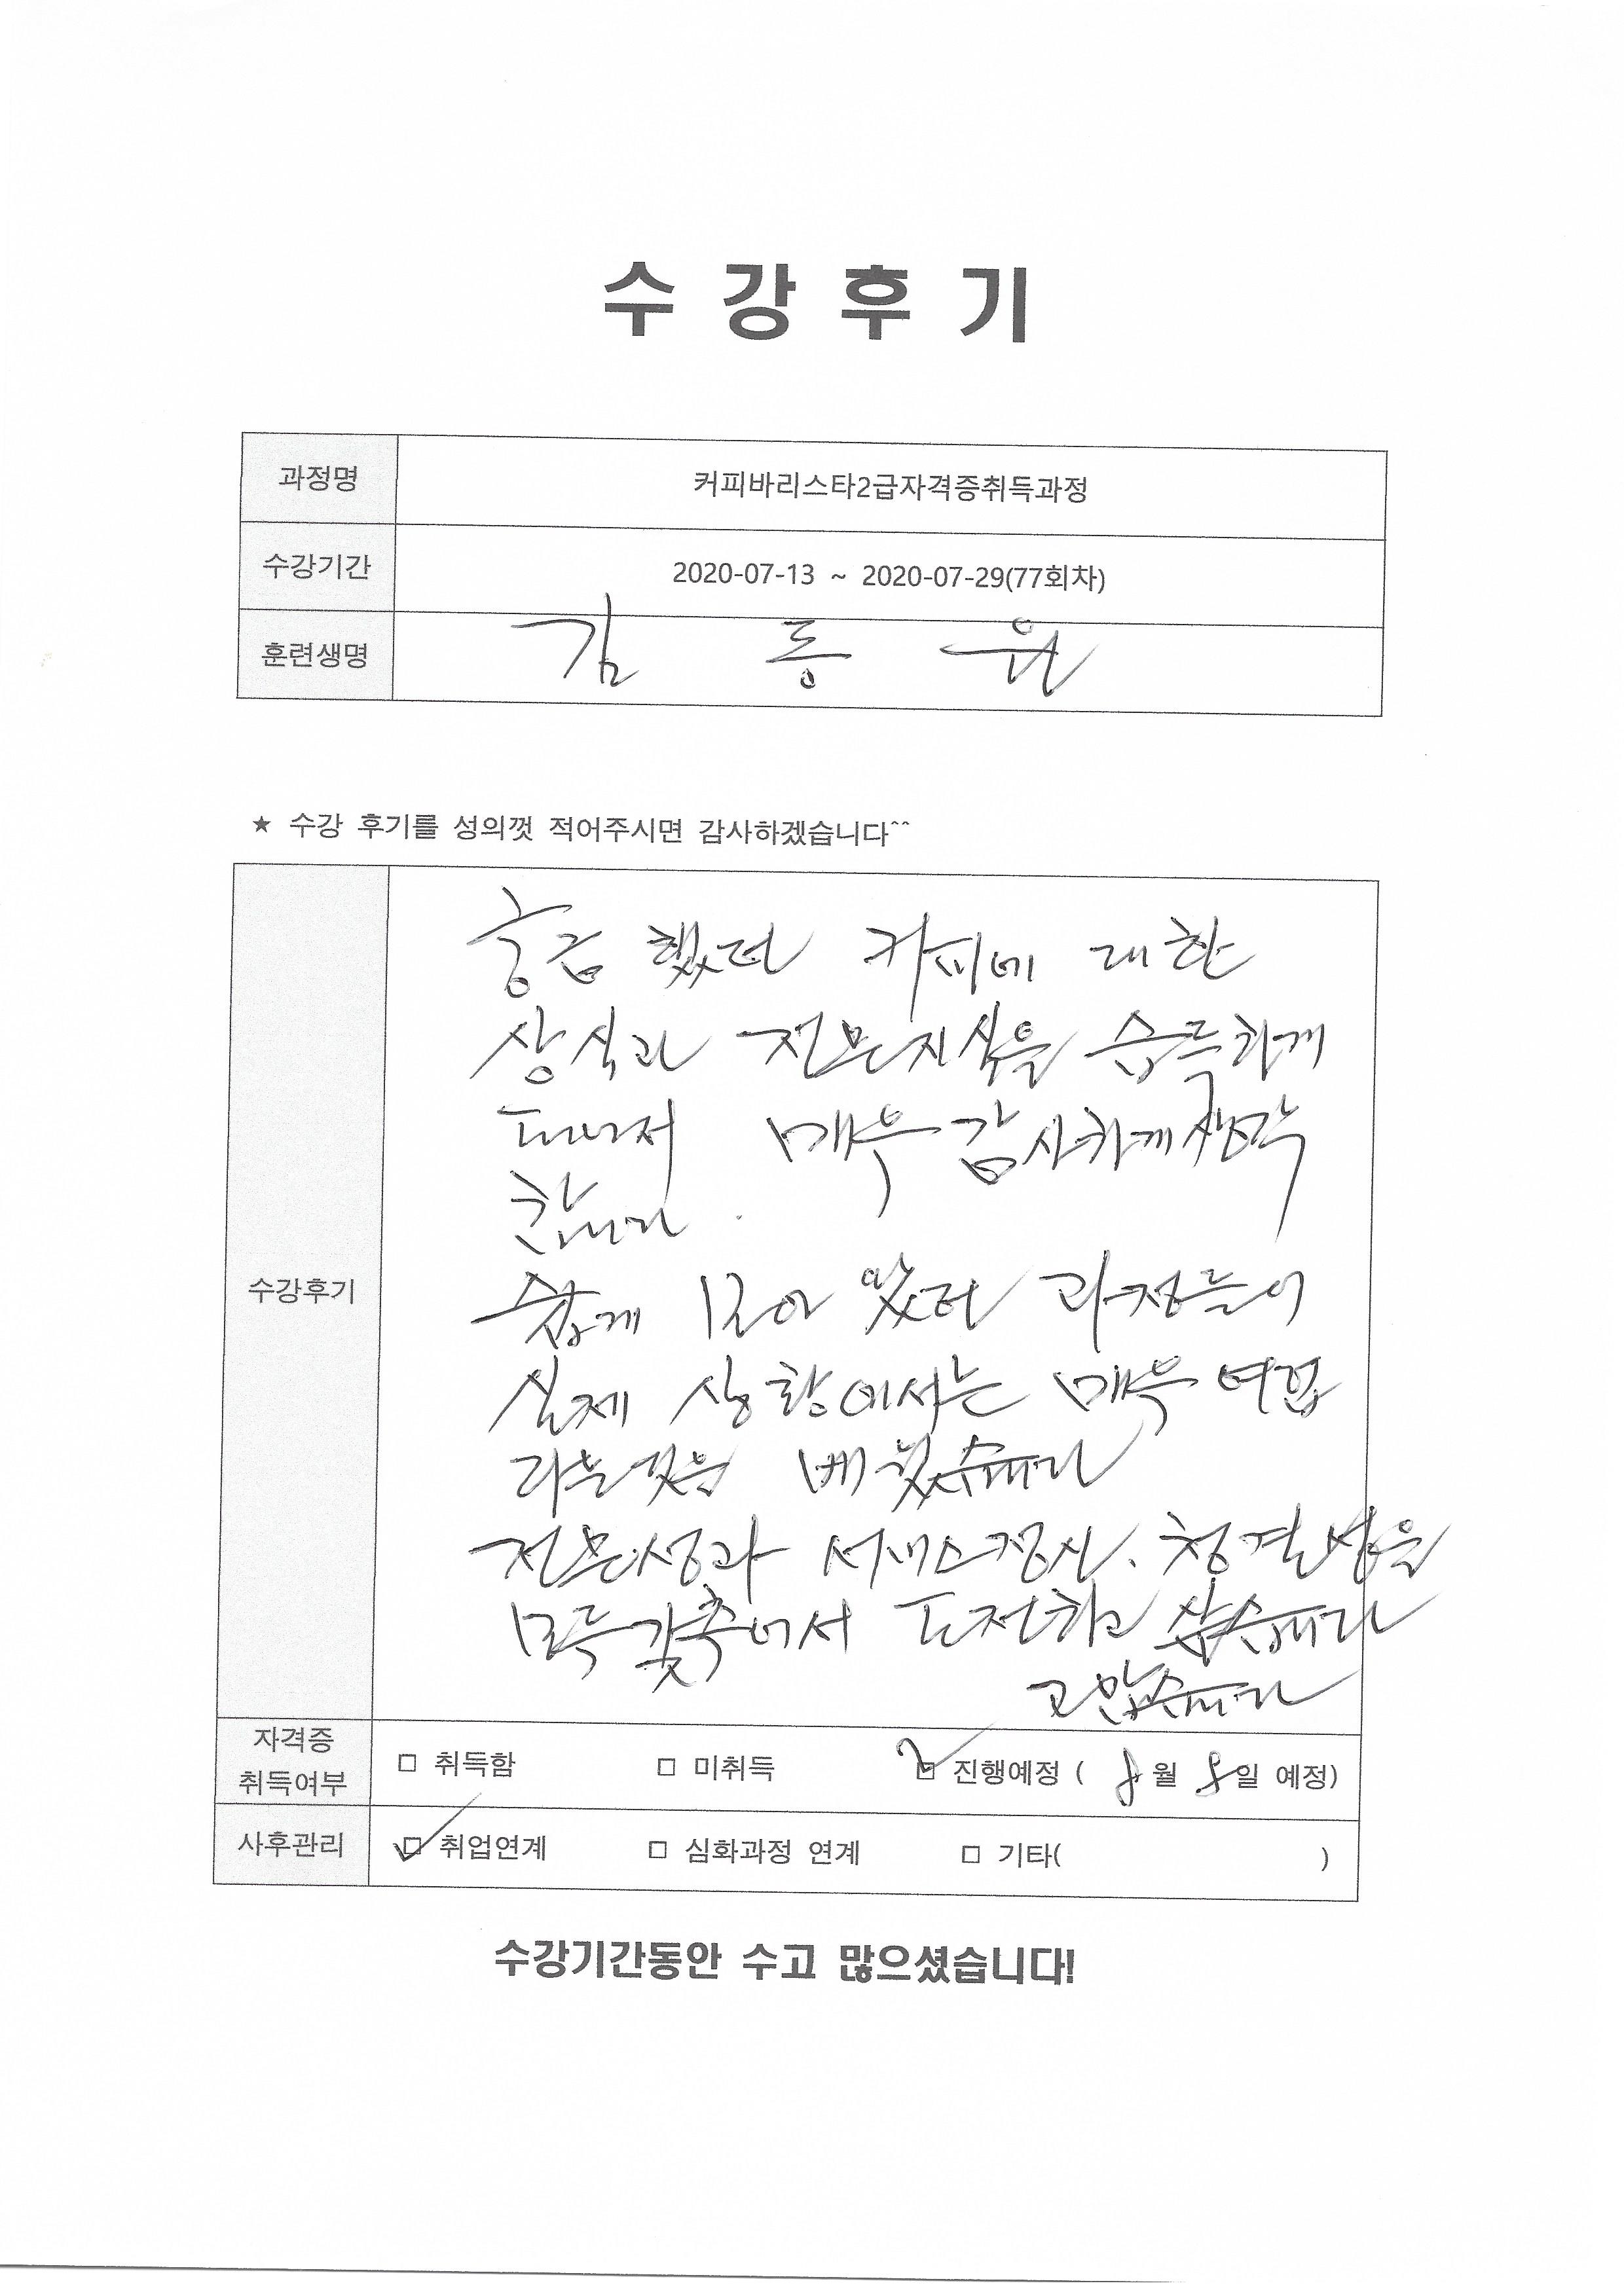 수 강 후 기
과정명 커피바리스타2급자격증취득과정
수강기간 2020-07-13 ~ 2020-07-29(77회차)
훈련생명 김 동 원
★ 수강 후기를 성의껏 적어주시면 감사하겠습니다^^
수강후기
궁금했던 커피에 대한
상식과 전문지식을 습득하게
되어서 매우 감사하게 생각
합니다.
쉽게 보아 왔던 과정들이
실제 상황에서는 매우 어렵
다는것을 배웠습니다
전문성과 서비스정신. 청결성을
모두갖추어서 도전하고 싶습니다
고맙습니다
자격증 취득여부 □ 취득함 □ 미취득 ☑ 진행예정 ( 8월 8일 예정)
사후관리 ☑ 취업연계 □ 심화과정 연계 □ 기타( )
수강기간동안 수고 많으셨습니다!